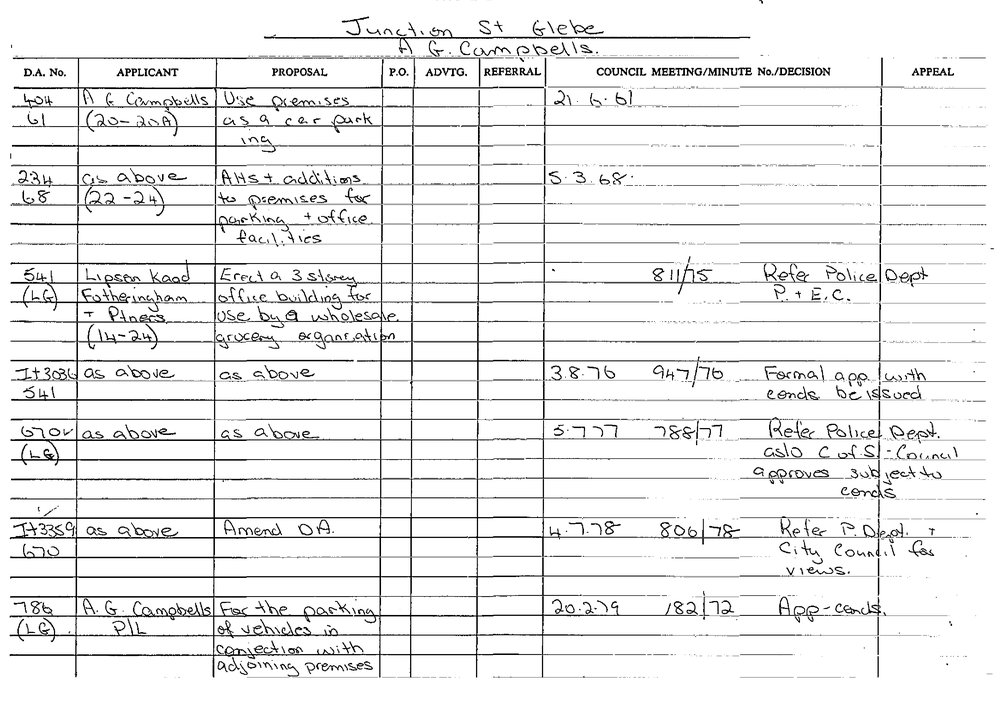 Junction St Glebe
A G. Campbells.
D.A. No. APPLICANT PROPOSAL P.O. ADVTG. REFERRAL COUNCIL MEETING/MINUTE No./DECISION APPEAL
404 A G Campbells Use premises 21.6.61
61 (20-20A) as a car park
ing
234 as above Alts + additions 5.3.68.
68 (22-24) to premises for
parking + office
facilities
541 Lipson Kaad Erect a 3 storey 811/75 Refer Police Dept
(LG) Fotheringham office building for P. + E.C.
+ Ptners use by a wholesale
(14-24) grocery organisation
It3036 as above as above 3.8.76 947/76 Formal app. with
541 conds be issued
670 as above as above 5.7.77 788/77 Refer Police Dept.
(LG) aslo C of S - Council
approves subject to
conds
It3359 as above Amend DA. 4.7.78 806/78 Refer P. Dept. +
670 City Council for
views.
786 A.G. Campbells For the parking 20.2.79 182/72 App-conds.
(LG) P/L of vehicles in
conjection with
adjoining premises